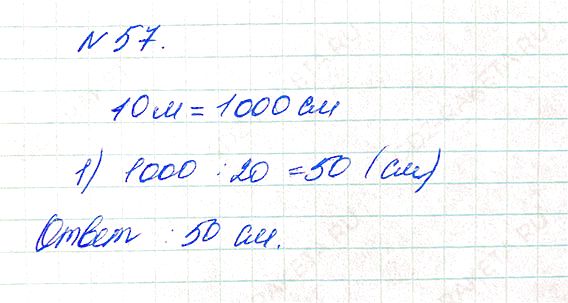 № 57.
10 м = 1000 см
1) 1000 : 20 = 50 (см)
Ответ : 50 см.